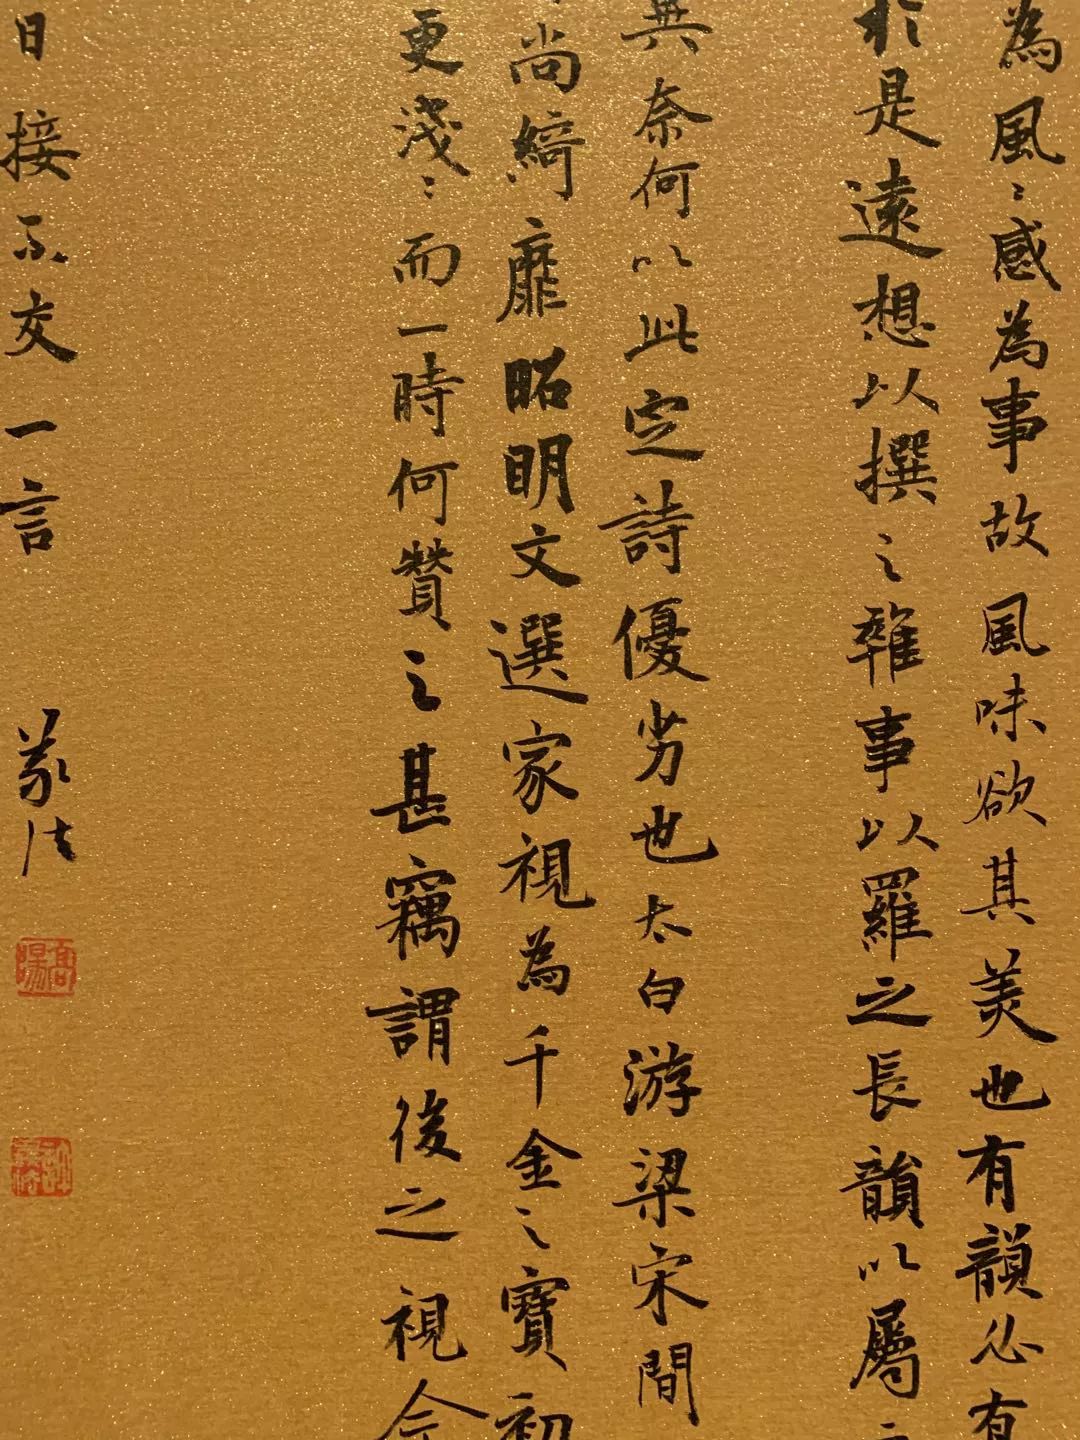 為風〻感為事故風味欲其美也有韻必有
於是遠想以撰之雜事以羅之長韻以屬
無奈何以此定詩優劣也太白游梁宋間
尚綺靡昭明文選家視為千金之寶初
更淺〻而一時何贊之甚竊謂後之視今
日接不交一言